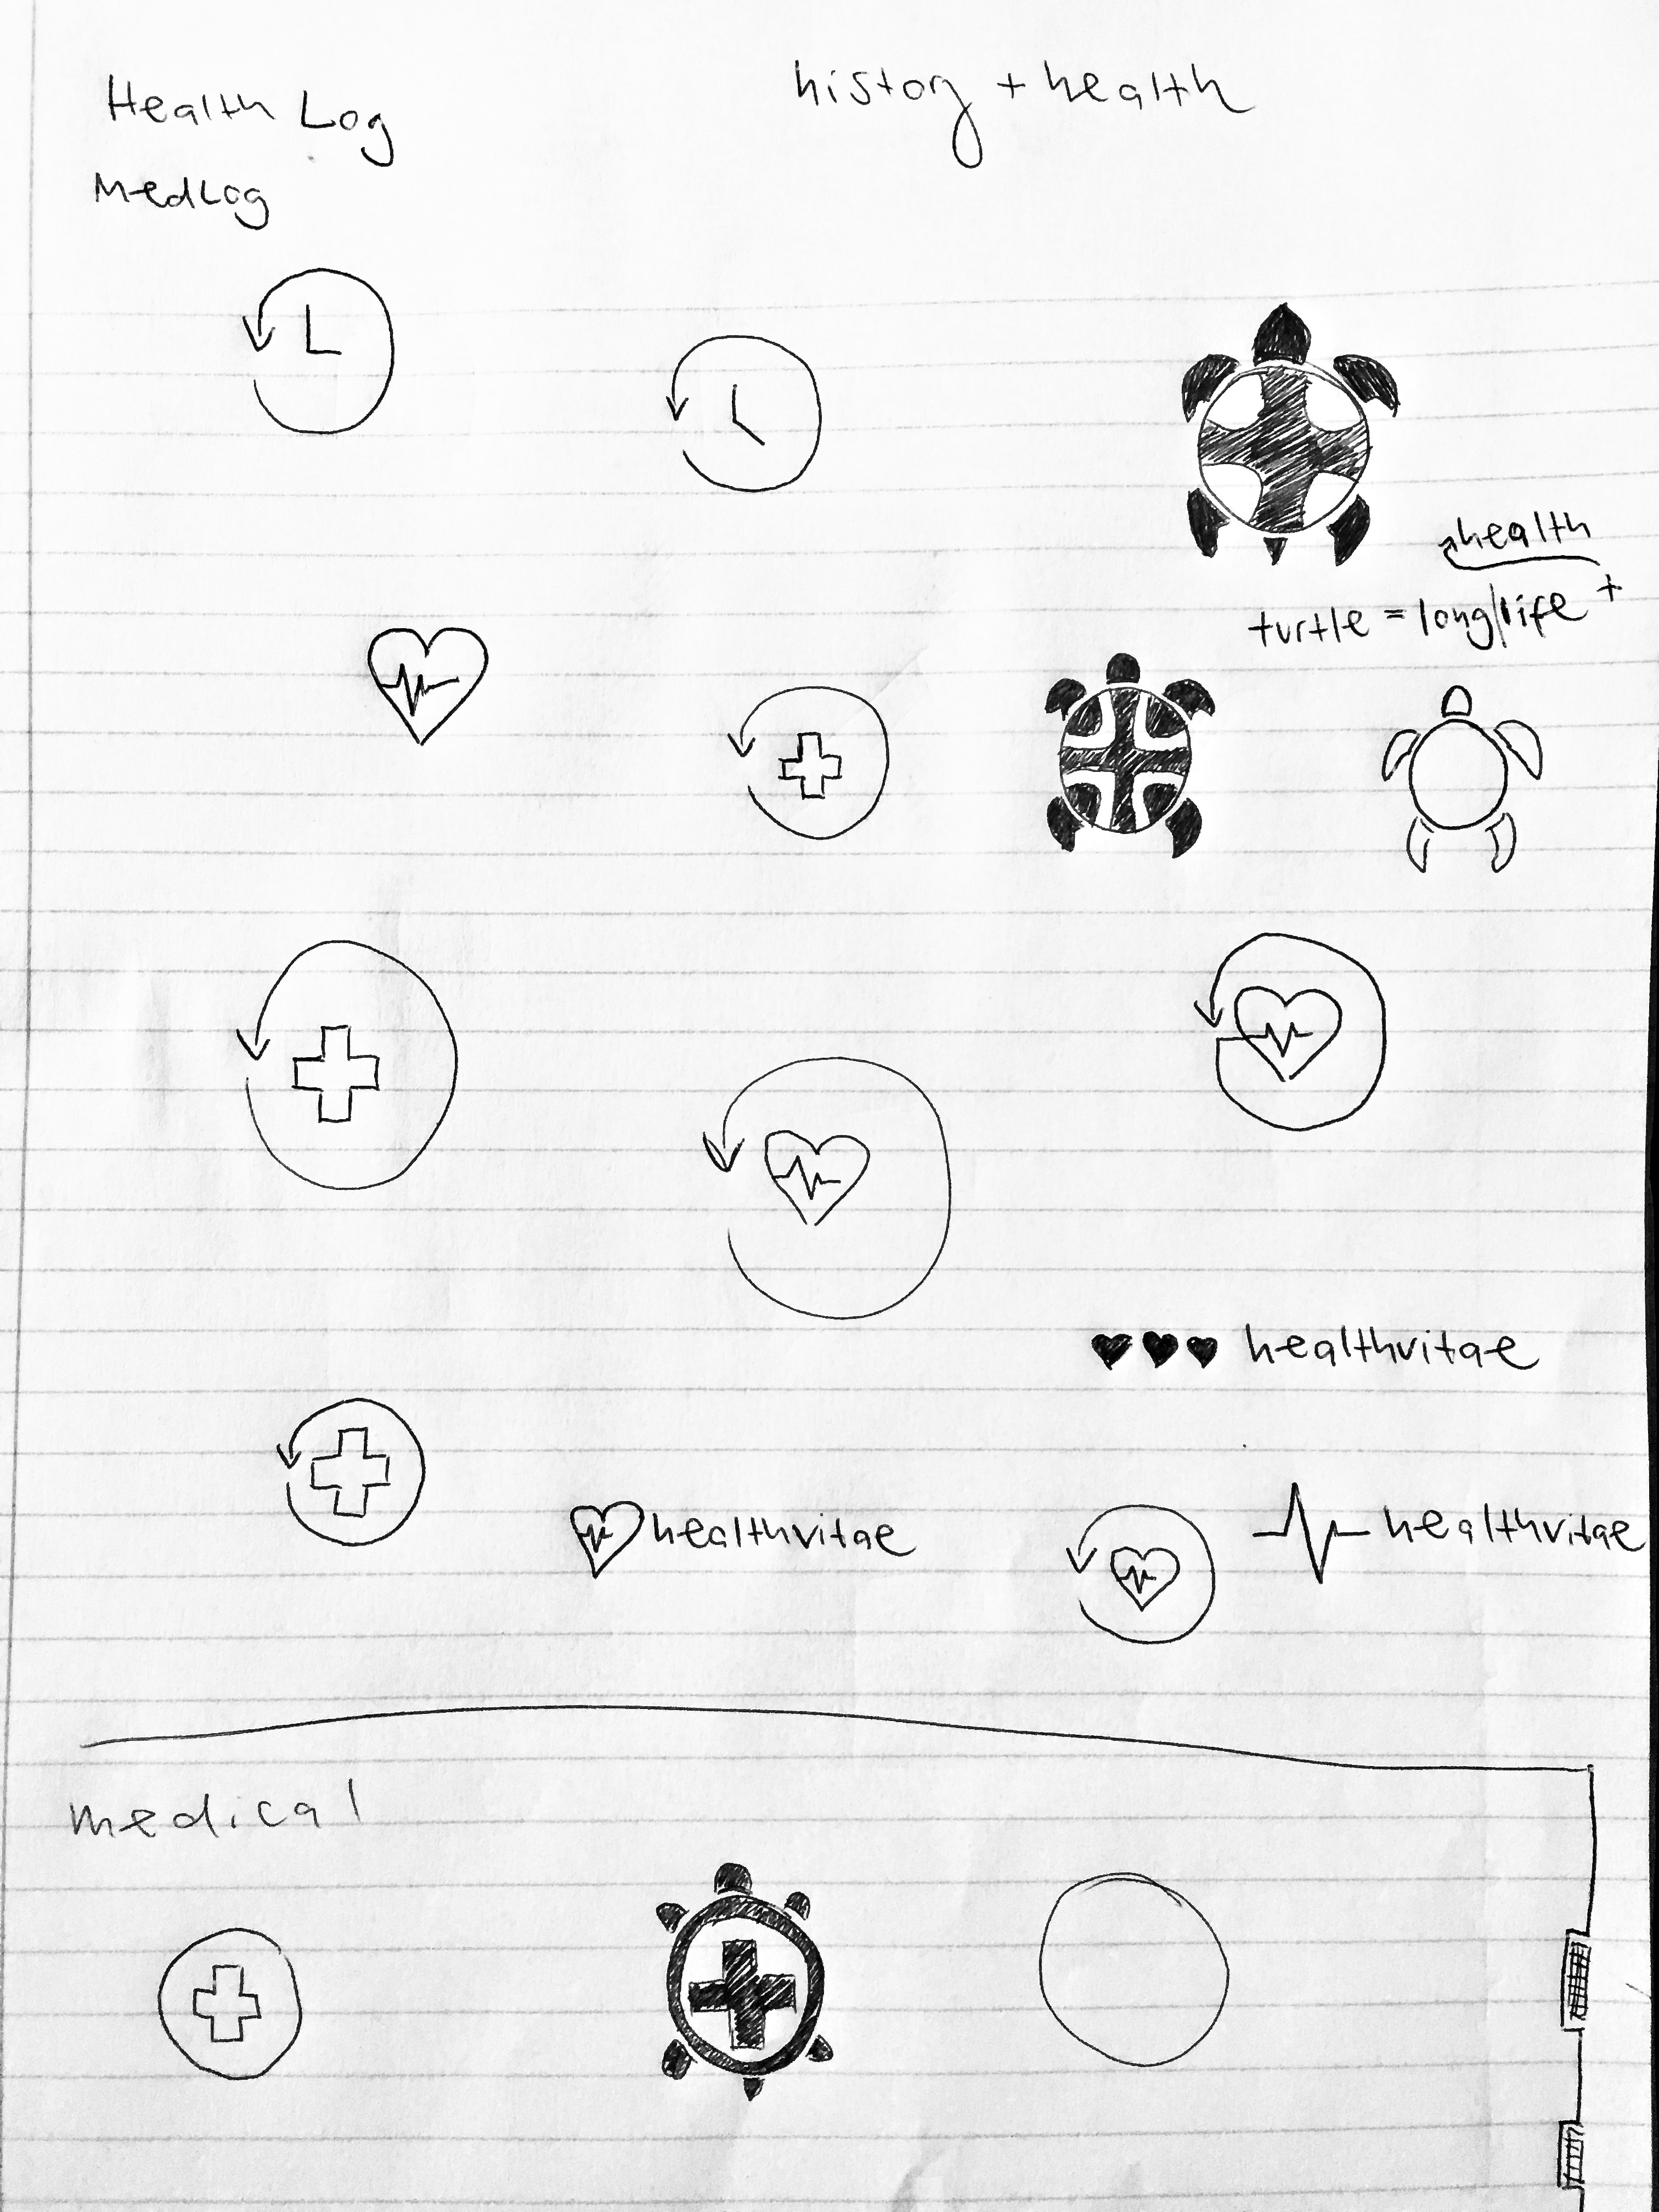 Health Log
history + health
MedLog
health
turtle = long/life +
healthvitae
healthvitae
healthvitae
medical